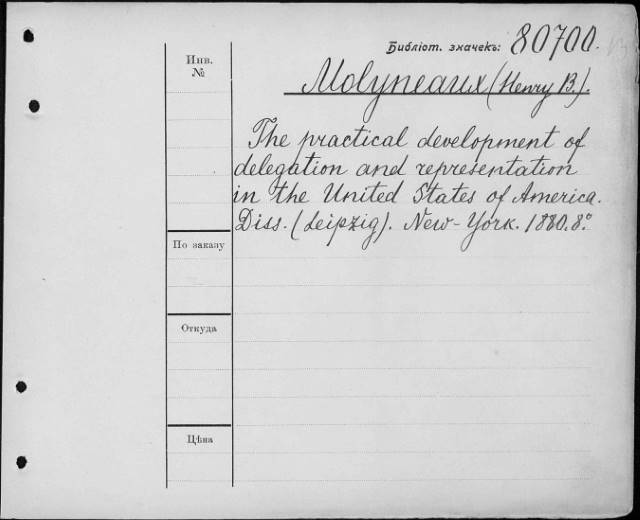 Библіот. значекъ: 80700.
Инв.
№
Molyneaux (Henry B.).
The practical development of
delegation and representation
in the United States of America.
Diss. (Leipzig). New-York. 1880. 8.º
По заказу
Откуда
Цѣна